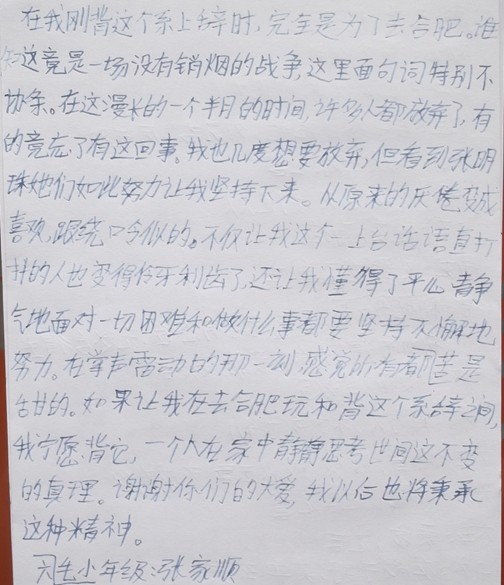 在我刚背这个系上辞时，完全是为了去合肥。谁
知这竟是一场没有销烟的战争，这里面句词特别不
协条。在这漫长的一个半月的时间，许多人都放弃了，有
的竟忘了有这回事。我也几度想要放弃，但看到张明
珠她们如此努力让我坚持下来。从原来的厌倦变成
喜欢，跟绕口令似的。不仅让我这个一上台话语直打
抖的人也变得伶牙利齿了，还让我懂得了平心静
气地面对一切困难和做什么事都要坚持不懈地
努力。在掌声雷动的那一刻，感觉所有都苦是
甜的。如果让我在去合肥玩和背这个系辞之间，
我宁愿背它，一个人在家中静静思考世间这不变
的真理。谢谢你们的大爱，我以后也将秉承
这种精神。
六年级：张家顺